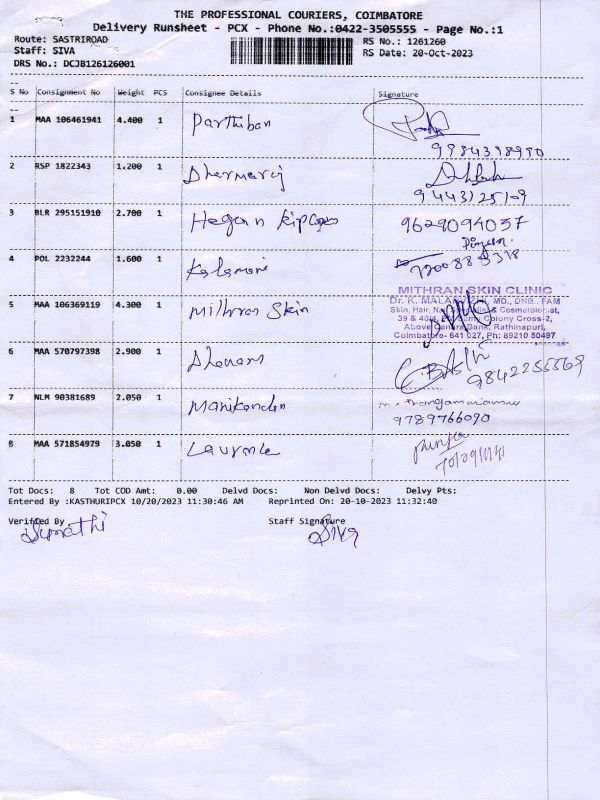 THE PROFESSIONAL COURIERS, COIMBATORE
Delivery Runsheet - PCX - Phone No.:0422-3505555 - Page No.:1
Route: SASTRIROAD
RS No.: 1261260
Staff: SIVA
RS Date: 20-Oct-2023
DRS No.: DCJB126126001
S No Consignment No Weight PCS Consignee Details Signature
1 MAA 106461941 4.400 1 Parthiban
2 RSP 1822343 1.200 1 Dharmaraj
9443125109
3 BLR 295151910 2.700 1 Hegan
9629094037
4 POL 2232244 1.600 1 Kalamani
5 MAA 106369119 4.300 1 Mithran Skin
MITHRAN SKIN CLINIC
Dr. K. MD., DNB., FAM
Skin, Hair, & Cosmetologist,
39 & Colony Cross-2,
Above Canara Bank, Rathinapuri,
Coimbatore- 641 027, Ph: 89210 50497
6 MAA 570797398 2.900 1
9842255569
7 NLM 90381689 2.050 1 Manikandan
9789766090
8 MAA 571854979 3.050 1
Tot Docs: 8 Tot COD Amt: 0.00 Delvd Docs: Non Delvd Docs: Delvy Pts:
Entered By :KASTHURIPCX 10/20/2023 11:30:46 AM Reprinted On: 20-10-2023 11:32:40
Verified By Staff Signature
Sumathi Siva